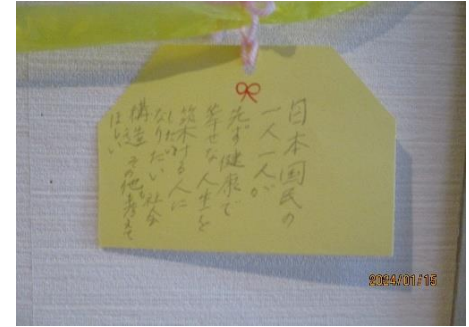 日本国民の
一人一人が
先ず健康で
幸せな人生を
築ける人に
なりたい 社会
構造 その他も考えて
ほしい
2024/01/15